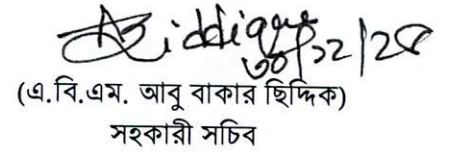 Siddique
৩০/১২/২৪
(এ.বি.এম. আবু বাকার ছিদ্দিক)
সহকারী সচিব